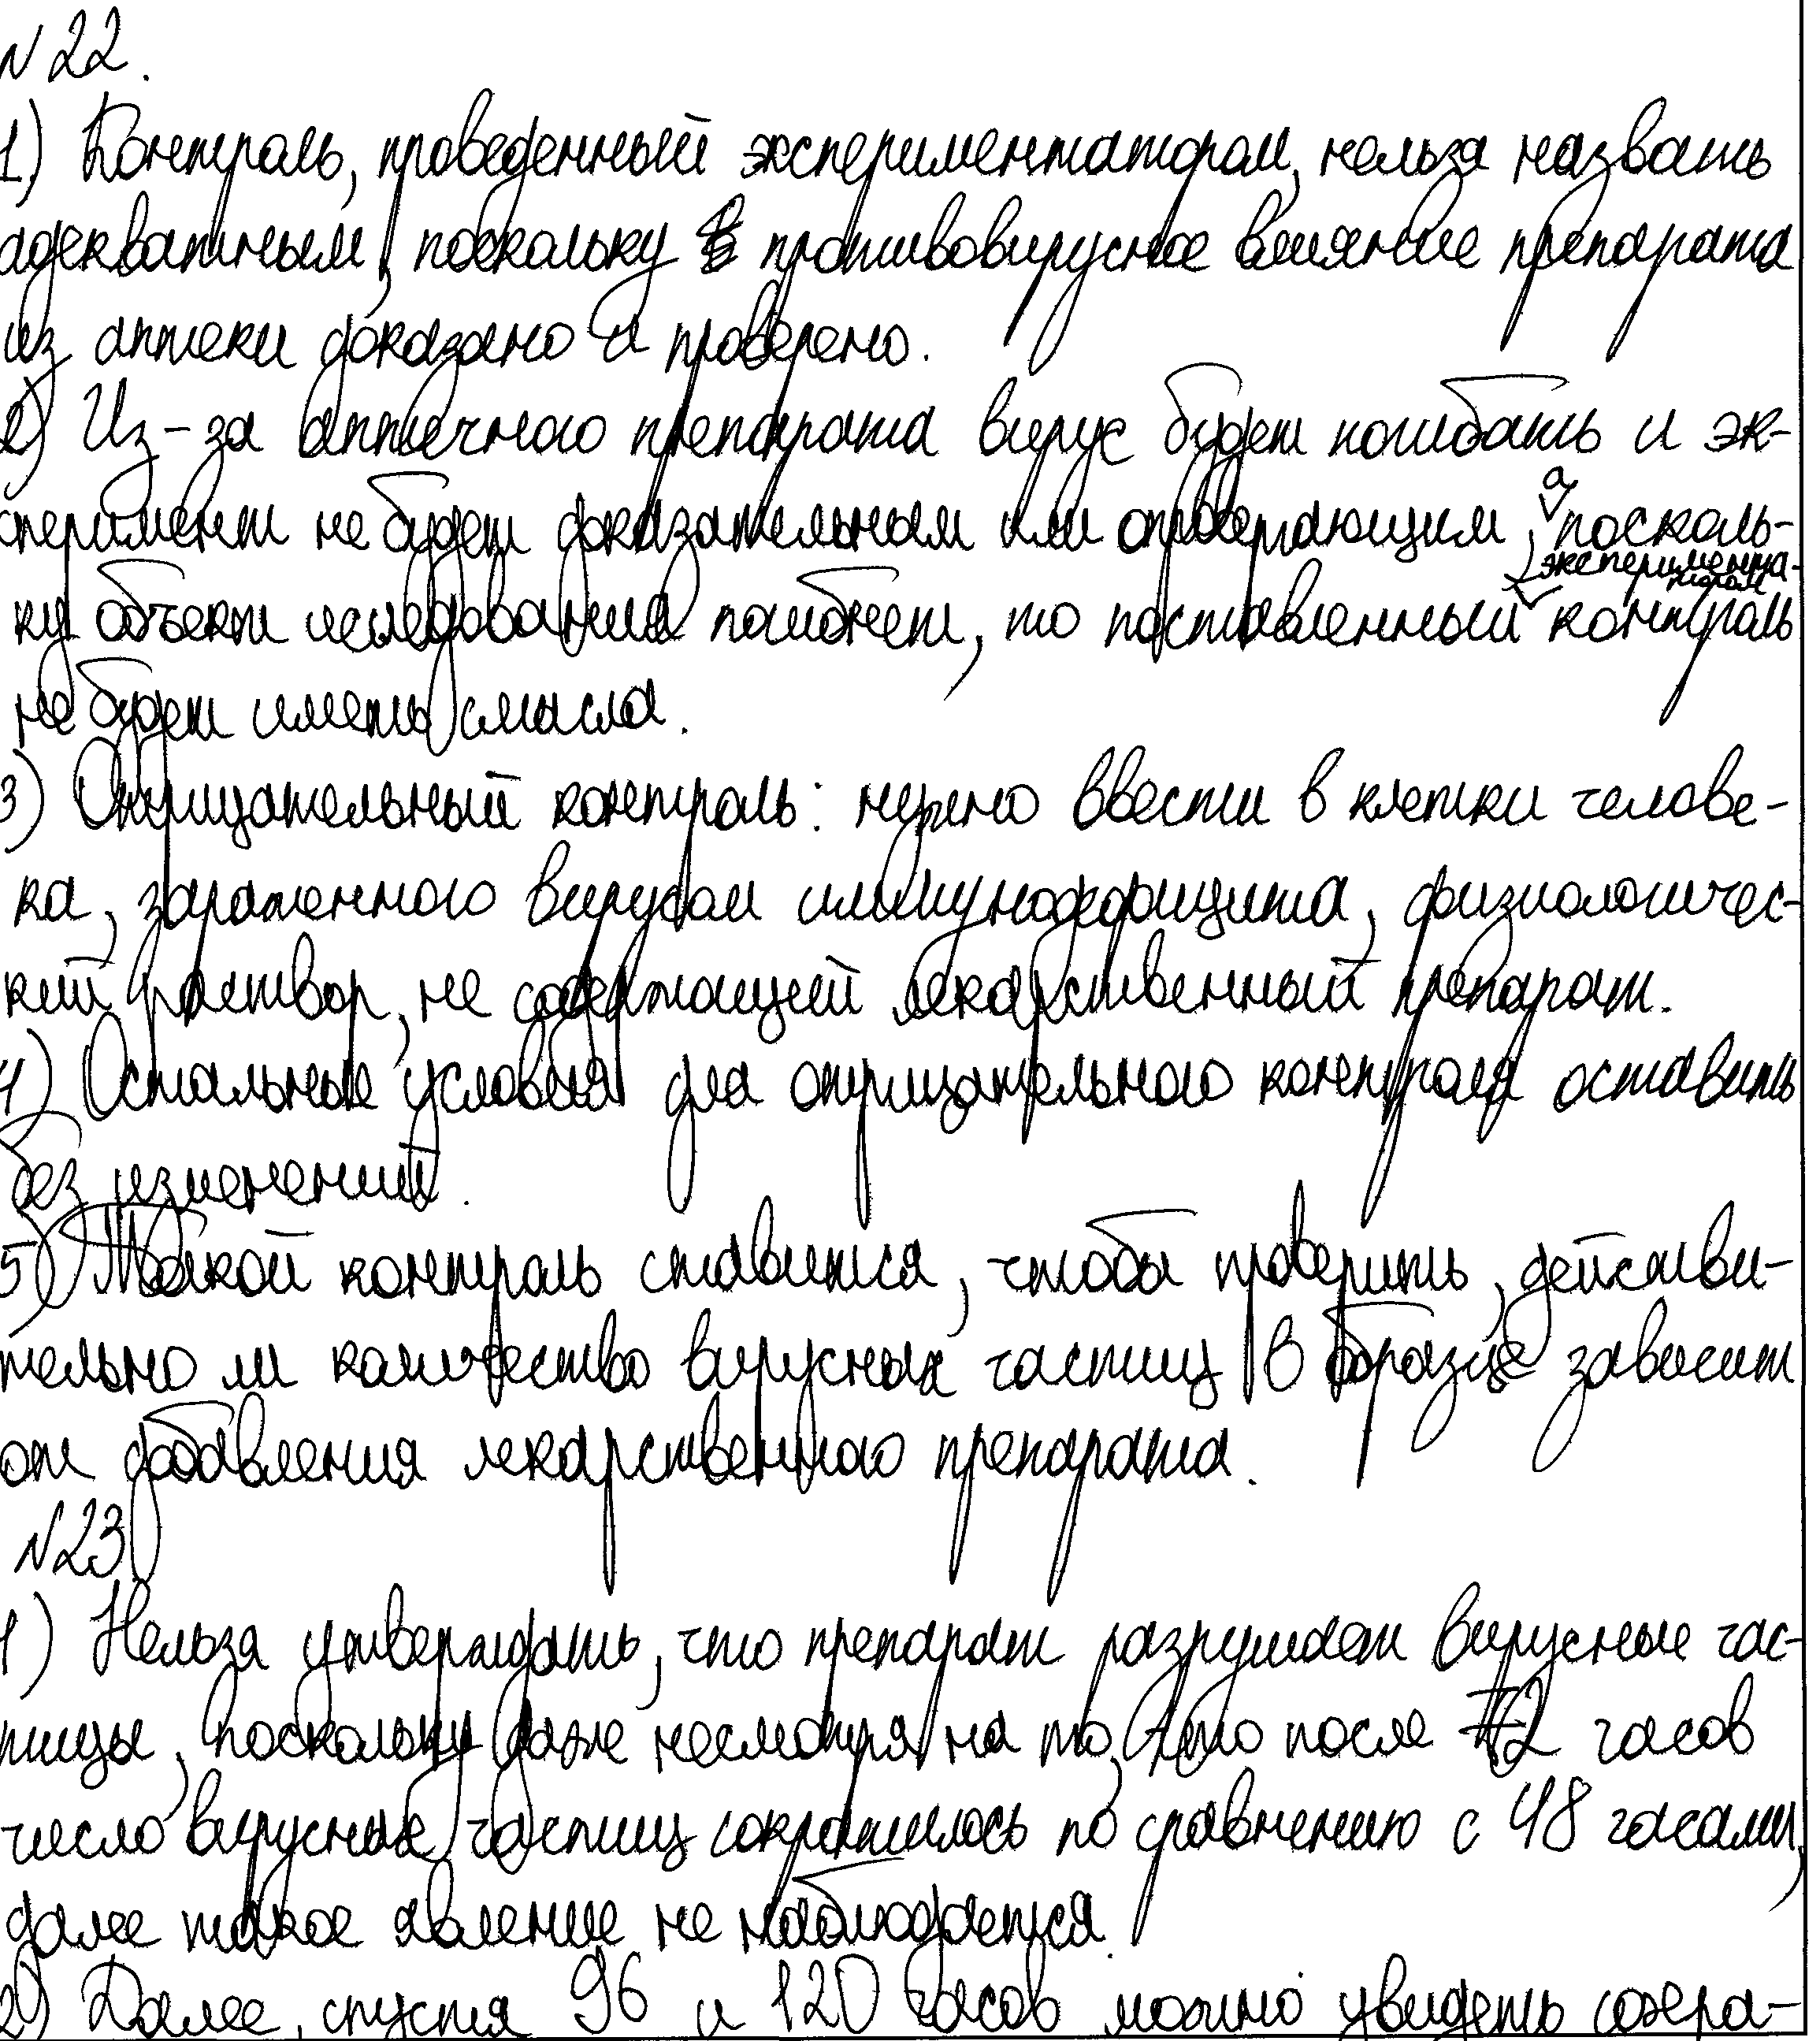 N22.
1) Контроль, проведенный экспериментатором, нельзя назвать
адекватным, поскольку противовирусное влияние препарата
из аптеки доказано и проверено.
2) Из-за аптечного препарата вирус будет погибать и эк-
сперимент не будет доказательным или опровергающим, а посколь-
ку объект исследования погибнет, то поставленный экспериментатором контроль
не будет иметь смысла.
3) Отрицательный контроль: нужно ввести в клетки челове-
ка, зараженного вирусом иммунодефицита, физиологичес-
кий раствор, не содержащий лекарственный препарат.
4) Остальные условия для отрицательного контроля оставить
без изменений.
5) Такой контроль ставится, чтобы проверить, действи-
тельно ли количество вирусных частиц в образце зависит
от добавления лекарственного препарата.
N23
1) Нельзя утверждать, что препарат разрушает вирусные час-
тицы, поскольку даже несмотря на то, что после 72 часов
число вирусных частиц сократилось по сравнению с 48 часами,
далее такое явление не наблюдается.
2) Далее, спустя 96 и 120 часов можно увидеть сохра-